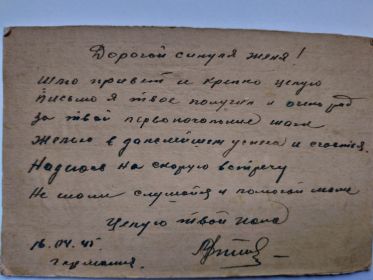 Дорогой синуля Женя!
Шлю привет и крепко целую
Письмо я твое получил и очень рад
за твои первоначальные шаги
Желаю в дальнейшем успеха и счастья.
Надеюсь на скорую встречу
Не шали слушайся и помогай маме
Целую твой папа
16.04.45
Германия.